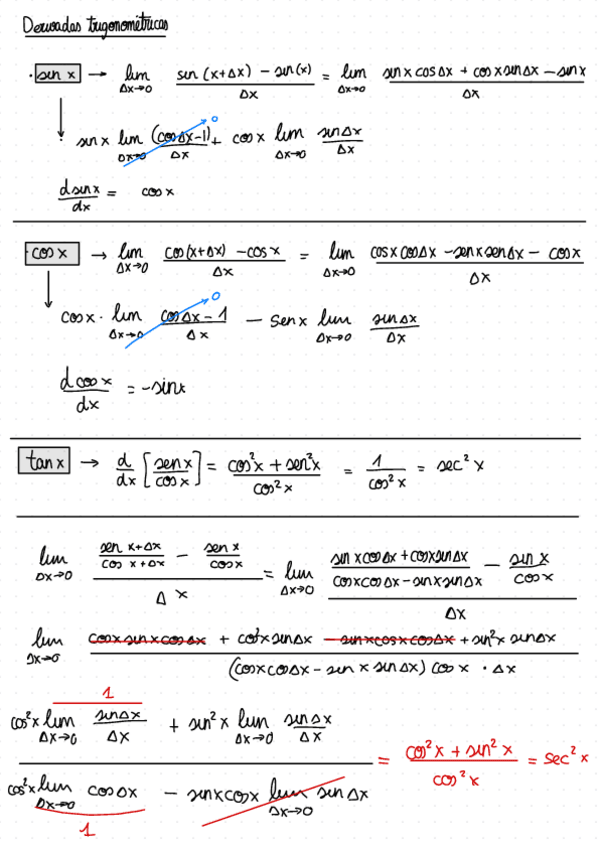 Derivadas trigonométricas
· sin x → lim Δx→0 (sin (x+Δx) - sin(x))/Δx = lim Δx→0 (sin x cosΔx + cos x sinΔx - sin x)/Δx
sin x lim Δx→0 (cosΔx-1)/Δx 0 + cos x lim Δx→0 sinΔx/Δx
d sin x/dx = cos x
· cos x → lim Δx→0 (cos(x+Δx) - cos x)/Δx = lim Δx→0 (cosx cosΔx - senx senΔx - cosx)/Δx
cos x · lim Δx→0 (cosΔx - 1)/Δx 0 - sen x lim Δx→0 sinΔx/Δx
d cos x/dx = -sinx
tan x → d/dx [sen x/cos x] = (cos²x + sen²x)/cos²x = 1/cos²x = sec² x
lim Δx→0 (sen x+Δx/cos x+Δx - sen x/cos x)/Δx = lim Δx→0 ((sin x cosΔx + cosx sinΔx)/(cosx cosΔx - sinx sinΔx) - sin x/cos x)/Δx
lim Δx→0 (cosx sinx cosΔx + cos²x sinΔx - sinx cosx cosΔx + sin²x sinΔx)/((cosx cosΔx - sin x sinΔx) cos x · Δx)
1
cos²x lim Δx→0 sinΔx/Δx + sin²x lim Δx→0 sinΔx/Δx
= (cos²x + sin²x)/cos²x = sec² x
cos²x lim Δx→0 cosΔx - sinx cosx lim Δx→0 sinΔx
1